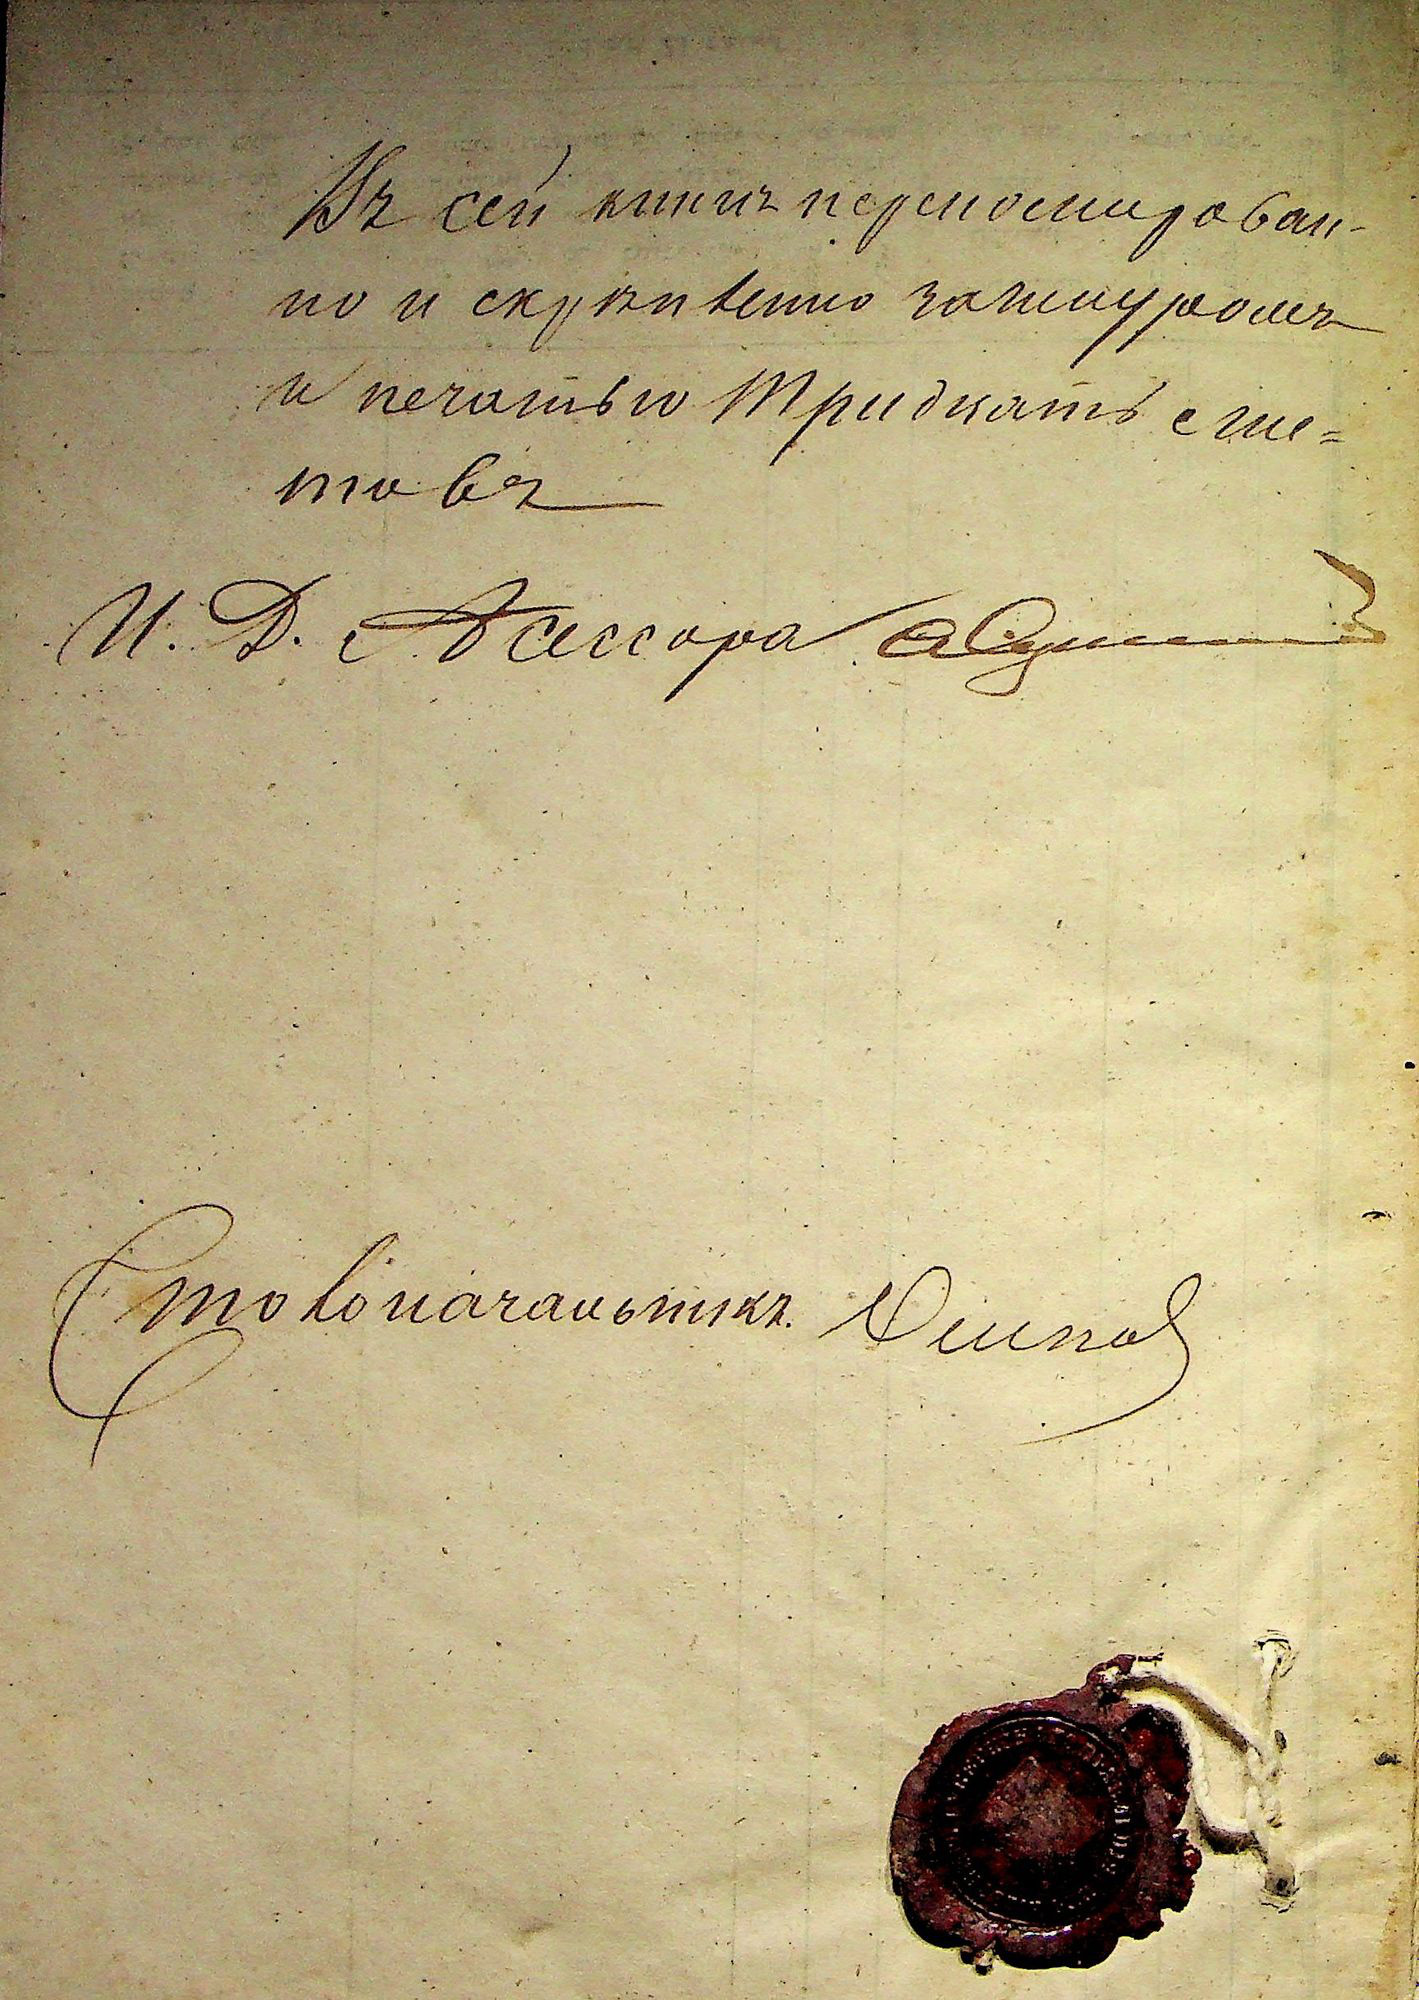 Въ сей книгѣ переномирован-
но и скрѣпленно за шнуромъ
и печатью Тридцать лис=
товъ
И. Д. Ассесора
Столоначальникъ.